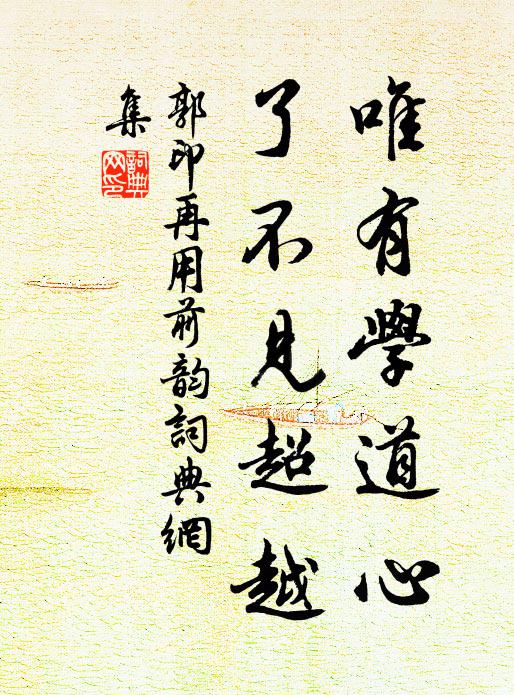 唯有學道心
了不見超越
郭印再用前韵詞典網
集
詞典
网印